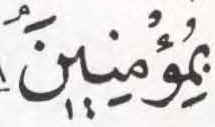 بِمُؤْمِنِينَ ۘ